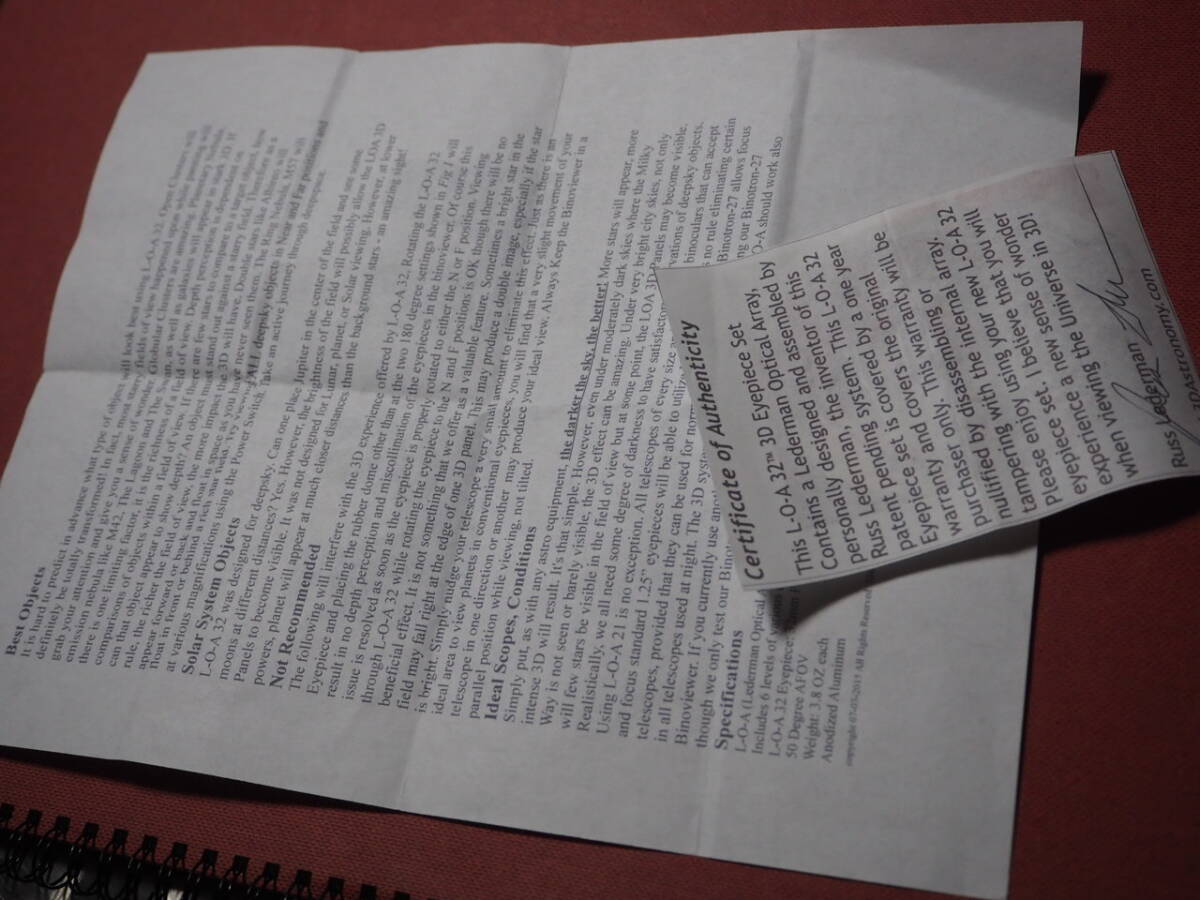 Best Objects
It is hard to predict in advance what type of object will look best using L-O-A 32. Open Clusters will
definitely be totally transformed! In fact, most starry fields of view happened upon while panning will
grab your attention and give you a sense of wonder. Globular Clusters are amazing.
emission nebula like M42, The Lagoon and The Swan, as well as galaxies
there is one limiting factor, it is the richness of a field of view. Depth perception is dependent on
comparisons of objects within a field of view. If there are few stars to compare to a target object, how
can that object appear to show depth? An object must stand out against a starry field. Therefore as a
rule, the richer the field of view, the more impact the 3D will have. Double stars like Albireo will
appear forward or back and float in space as you have never seen them. The Ring Nebula, M57 will
float in front or behind a rich star field. Try viewing ALL deepsky objects in Near and Far positions and
at various magnifications using the Power Switch. Take an active journey through deepspace.
Solar System Objects
L-O-A 32 was designed for deepsky. Can one place Jupiter in the center of the field and see some
moons at different distances? Yes. However, the brightness of the field will possibly allow the LOA 3D
Panels to become visible. It was not designed for Lunar, planet, or Solar viewing. However, at lower
powers, planet will appear at much closer distances than the background stars - an amazing sight!
Not Recommended
The following will interfere with the 3D experience offered by L-O-A 32. Rotating the L-O-A 32
Eyepiece and placing the rubber dome other than at the two 180 degree settings shown in Fig 4 will
result in no depth perception and miscollimation of the eyepieces in the binoviewer. Of course this
issue is resolved as soon as the eyepiece is properly rotated to either the N or F position. Viewing
through L-O-A 32 while rotating the eyepiece to the N and F positions is OK though there will be no
beneficial effect. It is not something that we offer as a valuable feature. Sometimes a bright star in the
field may fall right at the edge of one 3D panel. This may produce a double image, especially if the star
is bright. Simply nudge your telescope a very small amount to eliminate this effect. Just as there is an
ideal area to view planets in conventional eyepieces, you will find that a very slight movement of your
telescope in one direction or another may produce your ideal view. Always Keep the Binoviewer in a
parallel position while viewing, not tilted.
Ideal Scopes, Conditions
Simply put, as with any astro equipment, the darker the sky, the better! More stars will appear, more
intense 3D will result. It's that simple. However, even under moderately dark skies where the Milky
Way is not seen or barely visible, the 3D effect can be amazing. Under very bright city skies, not only
will few stars be visible in the field of view but at some point, the LOA 3D Panels may become visible.
Realistically, we all need some degree of darkness to have satisfactory observations of deepsky objects.
Using L-O-A 21 is no exception. All telescopes of every size binoculars that can accept
and focus standard 1.25" eyepieces will be able to utilize no rule eliminating certain
telescopes, provided that they can be used for Binotron-27 allows focus
in all telescopes used at night. The 3D system using our Binotron-27
Binoviewer. If you currently use L-O-A should work also
though we only test our
Specifications
L-O-A (Lederman Optical
Includes 6 levels of
L-O-A 32 Eyepiece:
50 Degree AFOV
Weight: 3.8 OZ each
Anodized Aluminum
copyright 07-05/2015 All Rights Reserved
Certificate of Authenticity
This L-O-A 32™ 3D Eyepiece Set
Contains a Lederman Optical Array,
designed and assembled by
Personally, the inventor of this
Lederman, system. This L-O-A 32
Russ Lederman, by a one year
patent pending covered by the original
Eyepiece set is covers the warranty will be
warranty and only. This warranty or
purchaser by disassembling array.
nullified with the internal L-O-A 32
tampering using your new that you will
Please enjoy I believe wonder
eyepiece set. sense of
experience a new Universe in 3D!
when viewing the
Russ Lederman
3DAstronomy.com